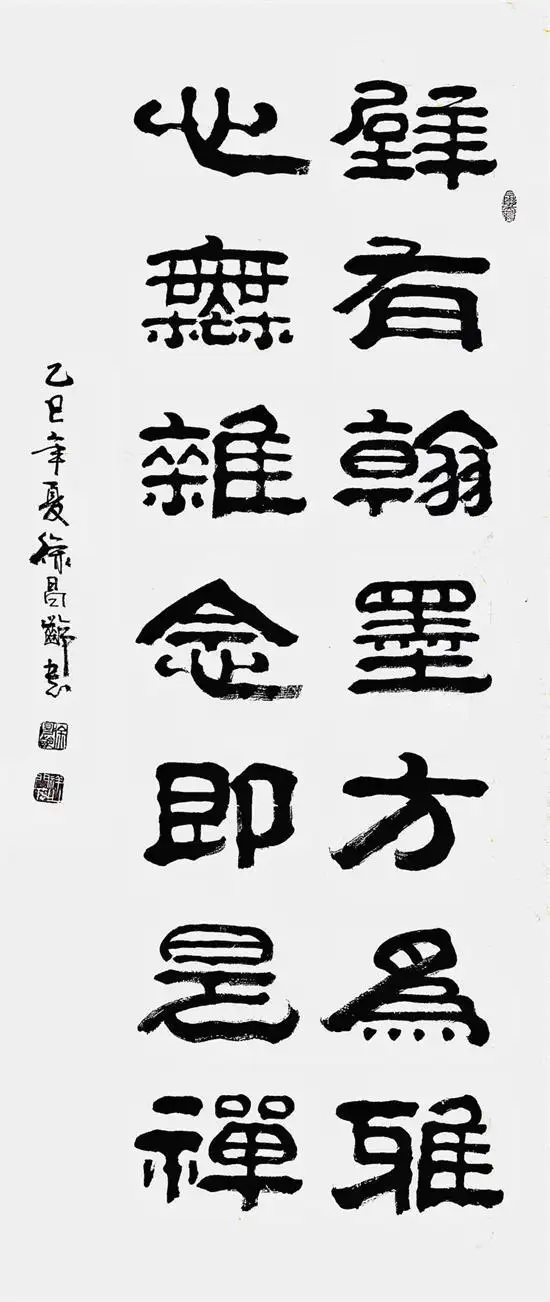 壁有翰墨方為雅
心無雜念即是禪
乙巳年夏徐昌齡書